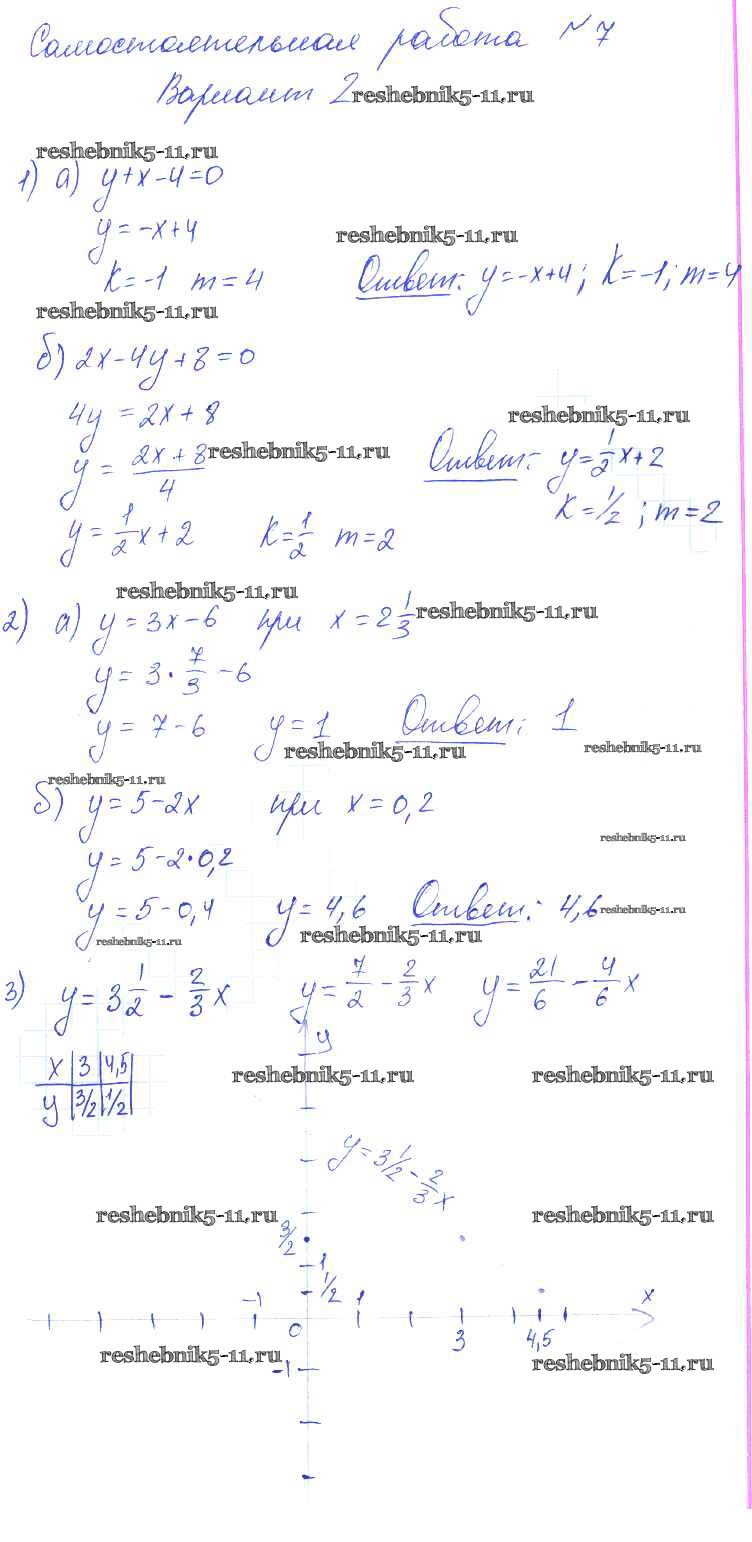 Самостоятельная работа №7
Вариант 2 reshebnik5-11.ru
reshebnik5-11.ru
1) а) y+x-4=0
y=-x+4 reshebnik5-11.ru
K=-1 m=4 Ответ: y=-x+4; K=-1; m=4
reshebnik5-11.ru
б) 2x-4y+8=0
4y=2x+8 reshebnik5-11.ru
y=(2x+8)/4 reshebnik5-11.ru Ответ: y=1/2x+2
K=1/2; m=2
y=1/2x+2 K=1/2 m=2
reshebnik5-11.ru
2) а) y=3x-6 при x=2 1/3 reshebnik5-11.ru
y=3·7/3-6
y=7-6 y=1 Ответ: 1
reshebnik5-11.ru reshebnik5-11.ru
reshebnik5-11.ru
б) y=5-2x при x=0,2
reshebnik5-11.ru
y=5-2·0,2
y=5-0,4 y=4,6 Ответ: 4,6 reshebnik5-11.ru
reshebnik5-11.ru reshebnik5-11.ru
3) y=3 1/2-2/3x y=7/2-2/3x y=21/6-4/6x
y
x 3 4,5
reshebnik5-11.ru reshebnik5-11.ru
y 3/2 1/2
y=3 1/2-2/3x
reshebnik5-11.ru reshebnik5-11.ru
3/2
1
1/2
-1 1 x
0 3 4,5
reshebnik5-11.ru reshebnik5-11.ru
-1